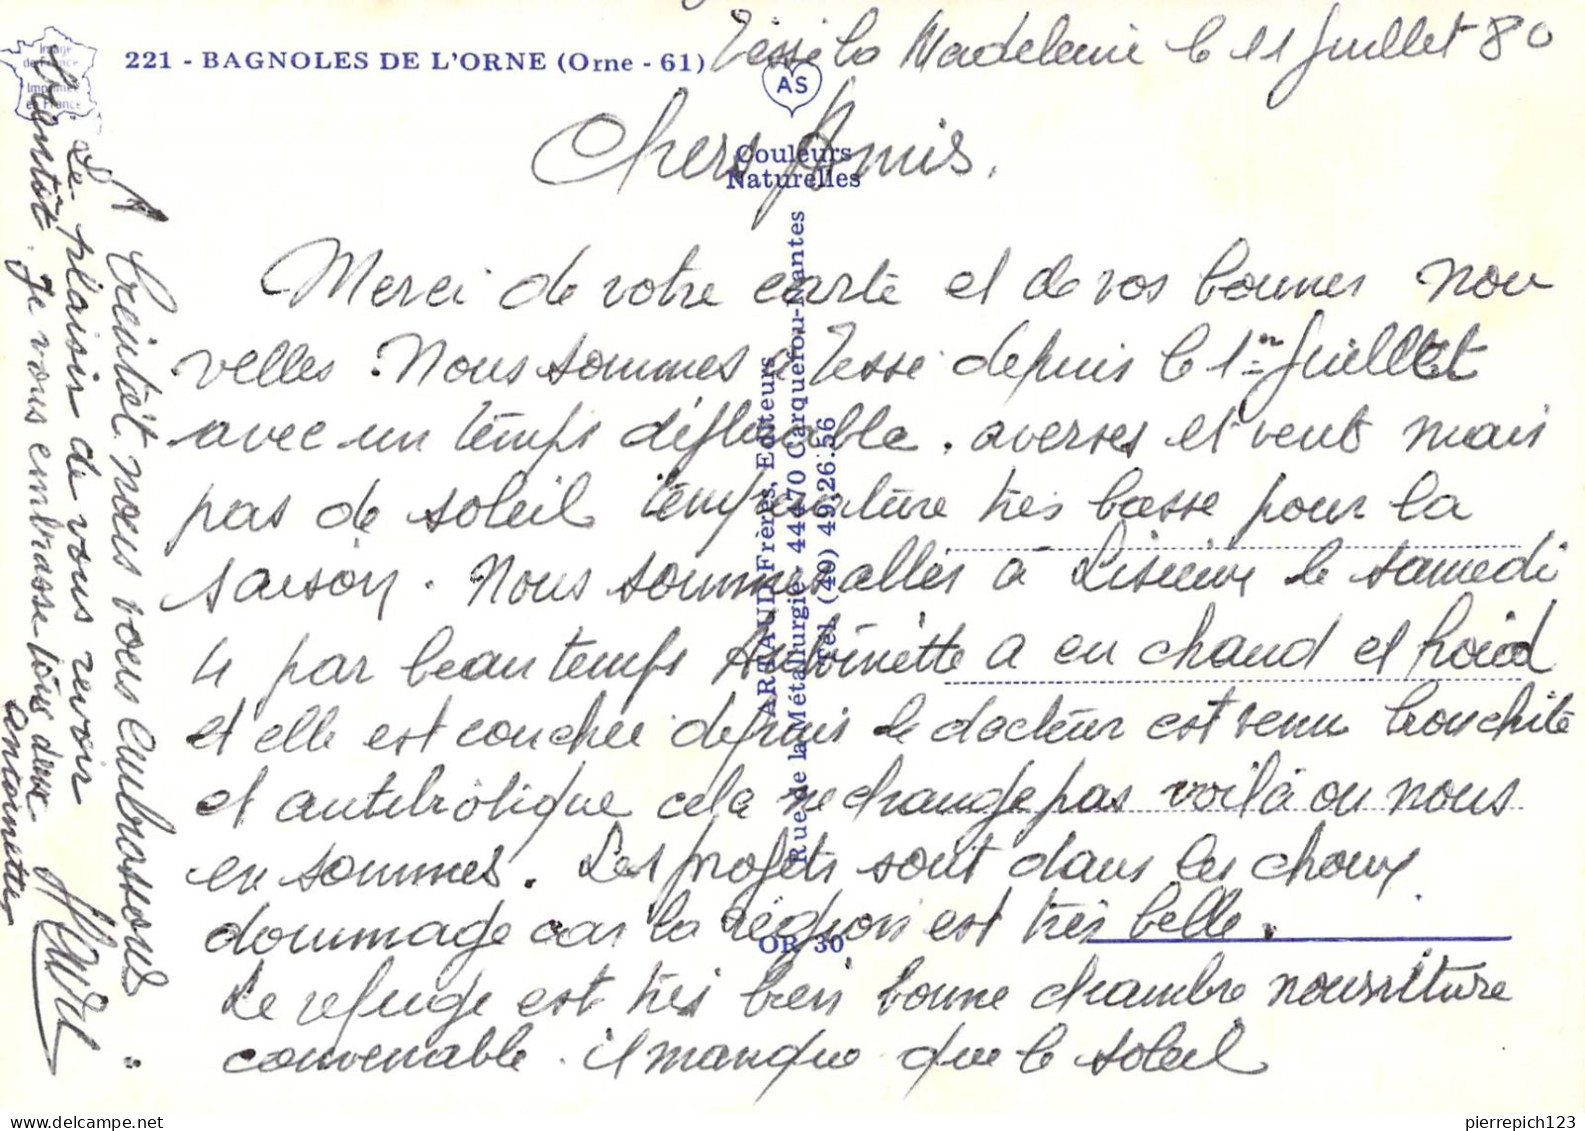 Tessé la Madeleine le 11 Juillet 80
221 - BAGNOLES DE L'ORNE (Orne - 61)
Image
de France
Imprimée
en France
AS
Couleurs
Naturelles
Chers Amis.
Merci de votre carte et de vos bonnes nou
velles. Nous sommes à Tessé depuis le 1er Juillet
avec un temps déplorable. averses et vent mais
pas de soleil température très basse pour la
saison. Nous sommes allés à Lisieux le samedi
4 par beau temps Antoinette a eu chaud et froid
et elle est couchée depuis le docteur est venu bronchite
et antibiotique cela ne change pas voilà ou nous
en sommes. Les projets sont dans les choux
dommage car la région est très belle.
Le refuge est très bien bonne chambre nourriture
convenable. il manque que le soleil
A bientôt nous vous embrassons
Le plaisir de vous revoir
bientôt. Je vous embrasse tous deux
Antoinette
ARTAUD Frères, Editeurs
Rue de la Métallurgie - 44470 Carquefou-Nantes
Tél. (40) 49.26.56
OR 30
pierrepich123